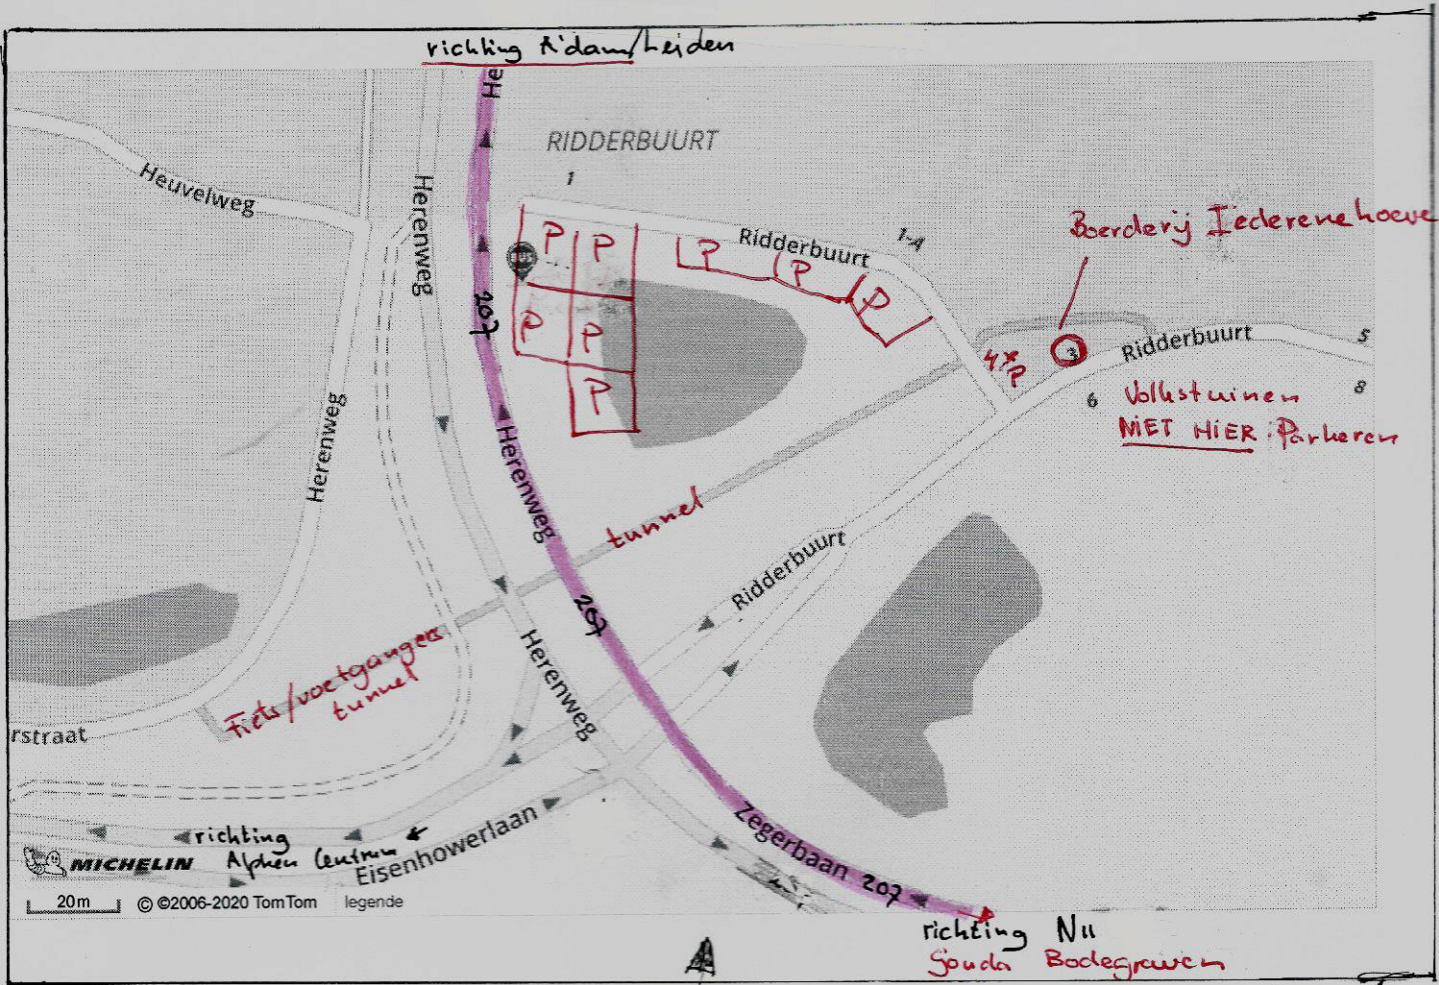 richting A'dam/Leiden
He
RIDDERBUURT
1
Heuvelweg
Herenweg
Boerderij Iederenehoeve
P P
Ridderbuurt
1-A
P
P
P
BUS
207
P
P
P
4xP
3
Ridderbuurt
5
8
6
Volkstuinen
NIET HIER Parkeren
Herenweg
Herenweg
tunnel
Ridderbuurt
207
Herenweg
Fiets/voetgangers
tunnel
rstraat
richting
Alphen Centrum
Eisenhowerlaan
Zegerbaan 207
MICHELIN
20m
© ©2006-2020 TomTom
legende
richting N11
Gouda Bodegraven